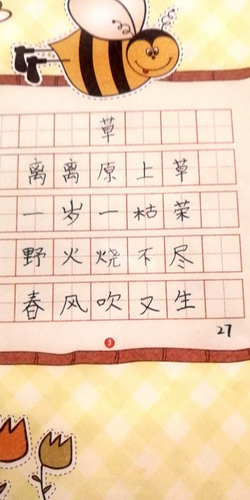 草
离离原上草
一岁一枯荣
野火烧不尽
春风吹又生
27
3